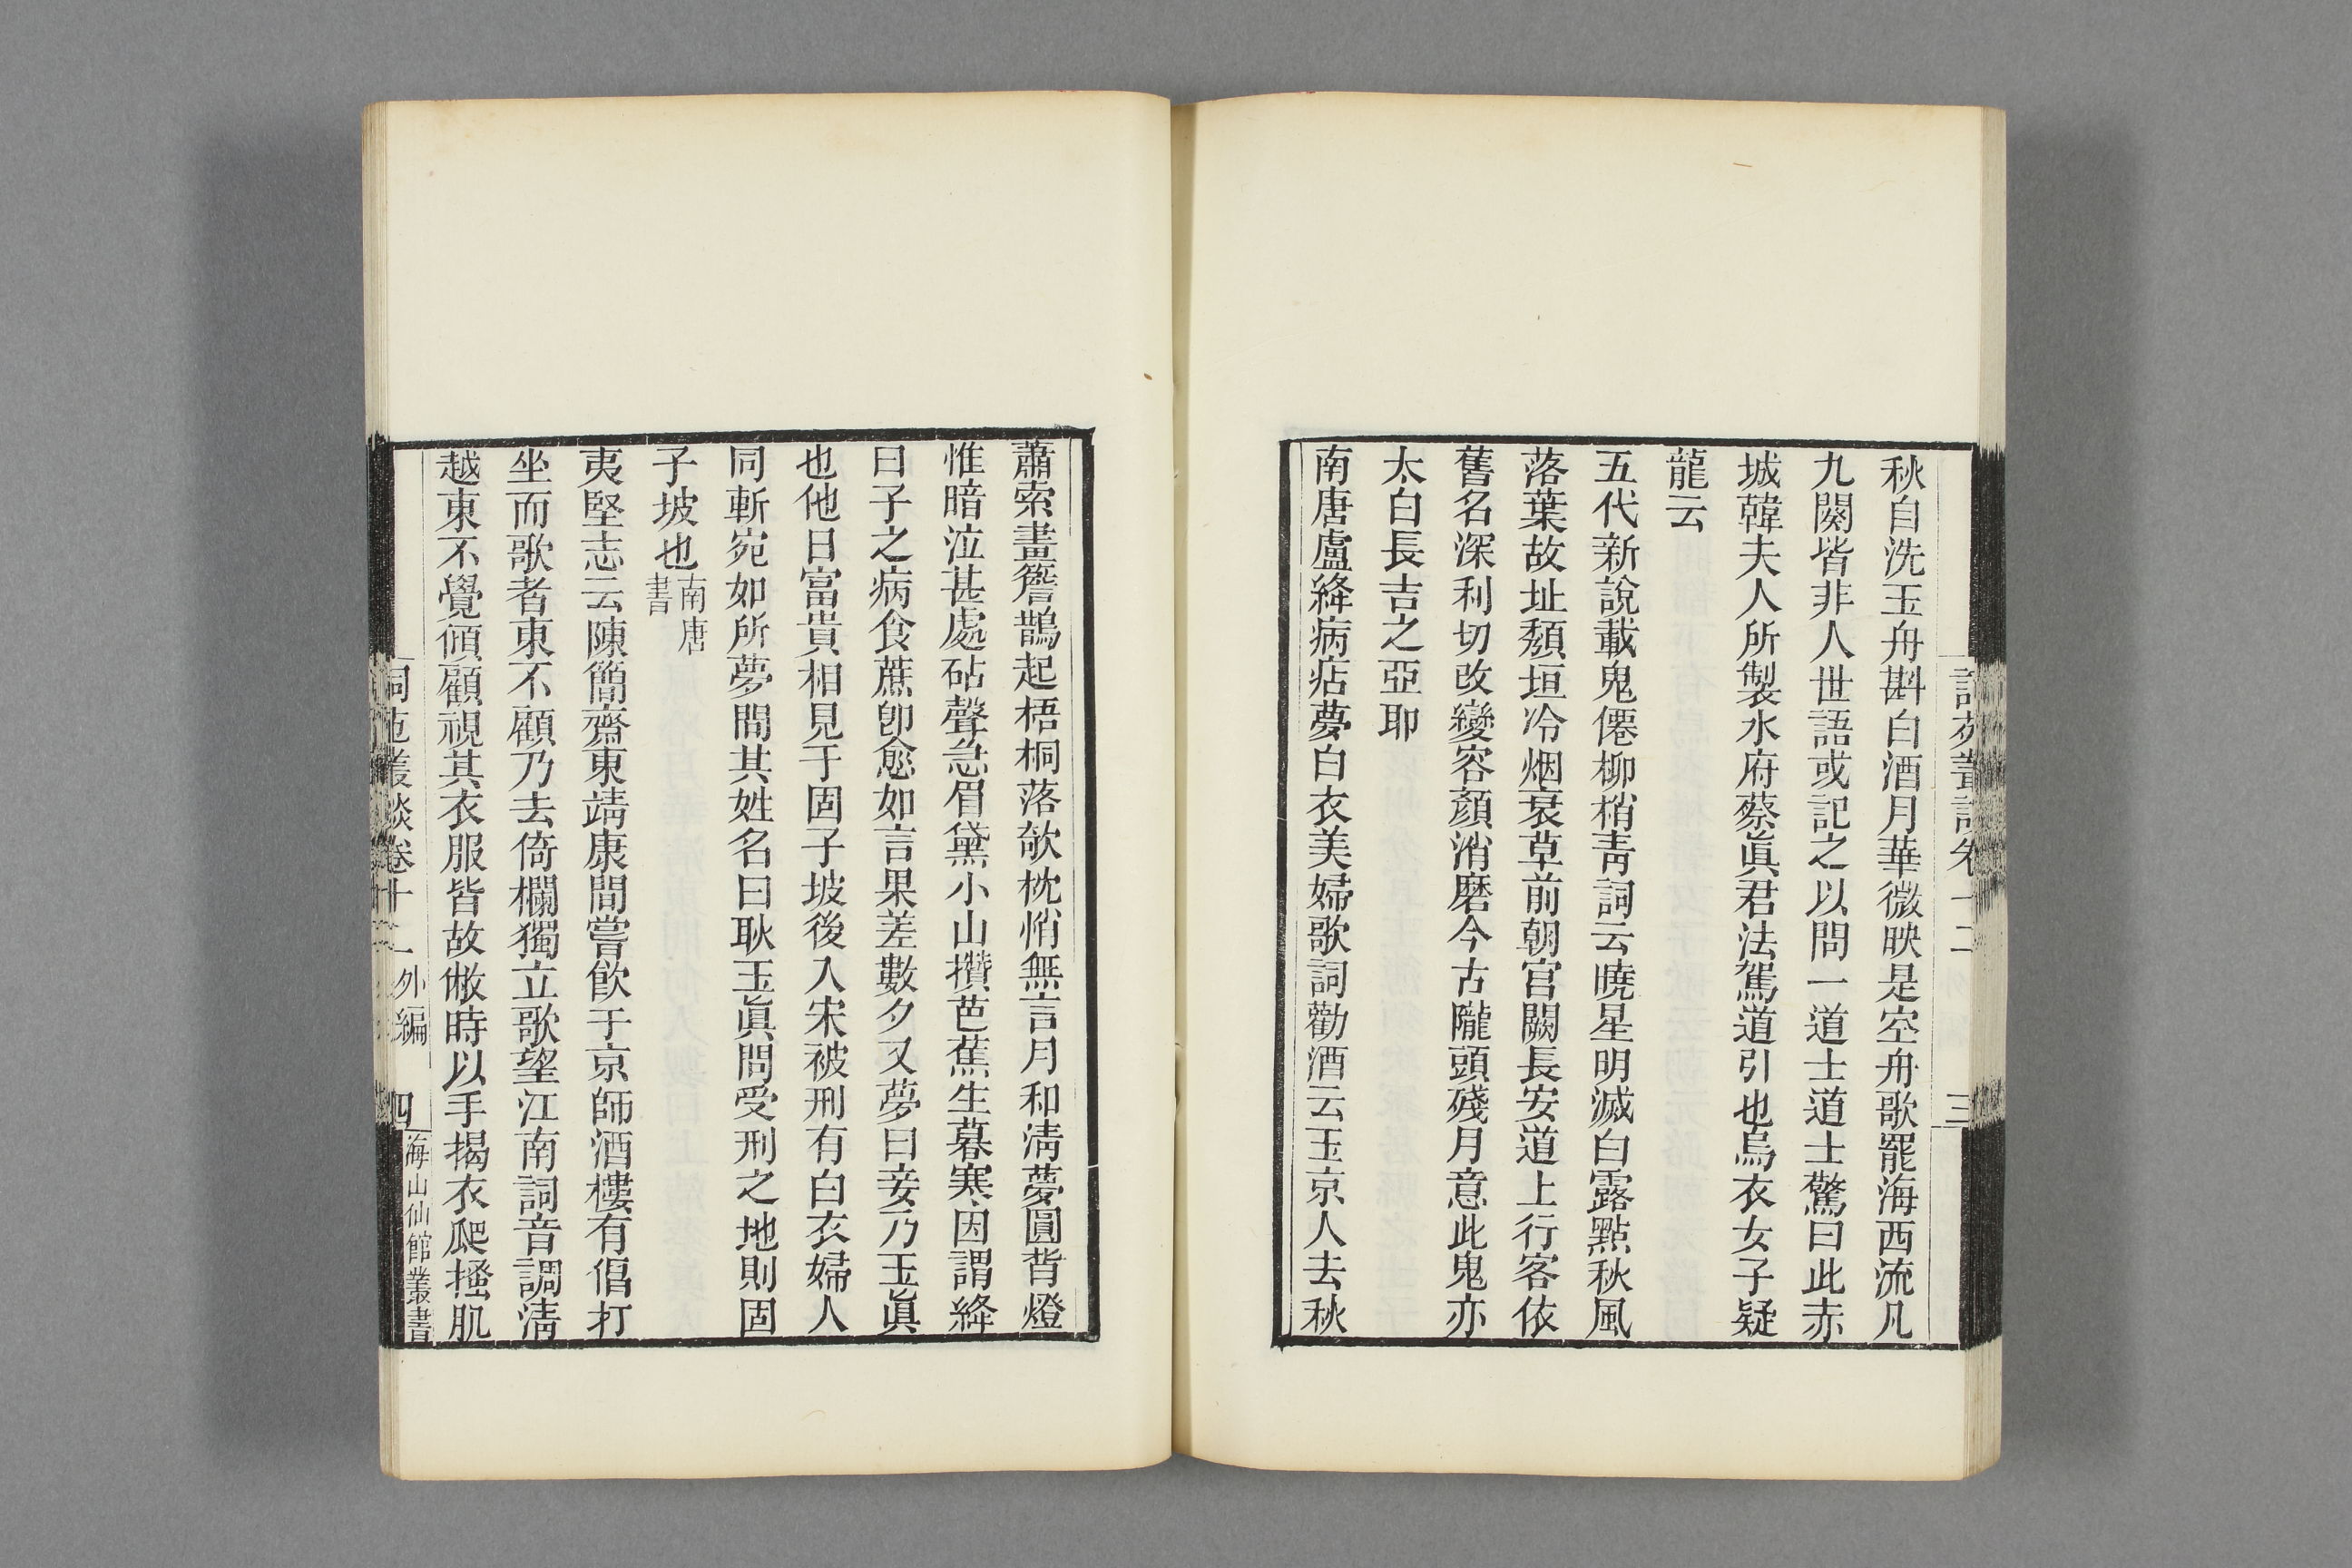 秋自洗玉舟斟白酒月華微映是空舟歌罷海西流凡
九闋皆非人世語或記之以問一道士道士驚曰此赤
城韓夫人所製水府蔡眞君法駕道引也烏衣女子疑
龍云
五代新說載鬼僊柳梢青詞云曉星明滅白露點秋風
落葉故址頹垣冷烟衰草前朝宫闕長安道上行客依
舊名深利切改變容顏消磨今古隴頭殘月意此鬼亦
太白長吉之亞耶
南唐盧絳病痁夢白衣美婦歌詞勸酒云玉京人去秋
蕭索畫簷鵲起梧桐落欹枕悄無言月和淸夢圓背燈
惟暗泣甚處砧聲急眉黛小山攢芭蕉生暮寒因謂絳
曰子之病食蔗卽愈如言果差數夕又夢曰妾乃玉眞
也他日富貴相見于固子坡後入宋被刑有白衣婦人
同斬宛如所夢問其姓名曰耿玉眞問受刑之地則固
子坡也南唐
書
夷堅志云陳簡齋東靖康間嘗飮于京師酒樓有倡打
坐而歌者東不顧乃去倚欄獨立歌望江南詞音調淸
越東不覺傾顧視其衣服皆故敝時以手揭衣爬搔肌
詞苑叢談卷十二 外編 四 海山仙館叢書